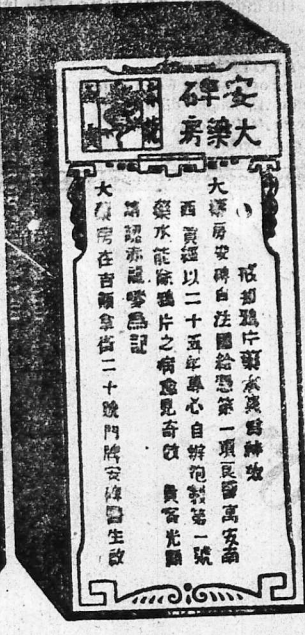 安碑
大藥房
戒却鴉片藥水
大藥房安碑自法國給憑第一項良醫寓安南
西貢經以二十五年專心自辦泡製第一號
藥水能除鴉片之病愈見奇效 貴客光顧
請認赤龍嘜爲記
大藥房在吉拿街二十號門牌安碑醫生啟